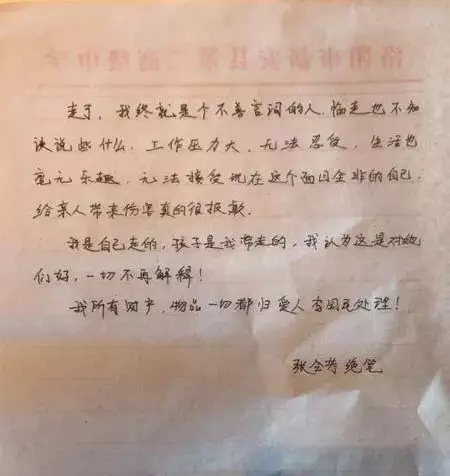 洛阳市新安县第 高级中学
走了，我终就是个不善言词的人，临走也不知
该说些什么，工作压力大，无法忍受，生活也
毫无乐趣，无法接受现在这个面目全非的自己，
给亲人带来伤害真的很报歉．
我是自己走的，孩子是我带走的，我认为这是对她
们好，一切不再解释！
我所有财产，物品一切都归爱人 李 处理！
张会芳 绝笔